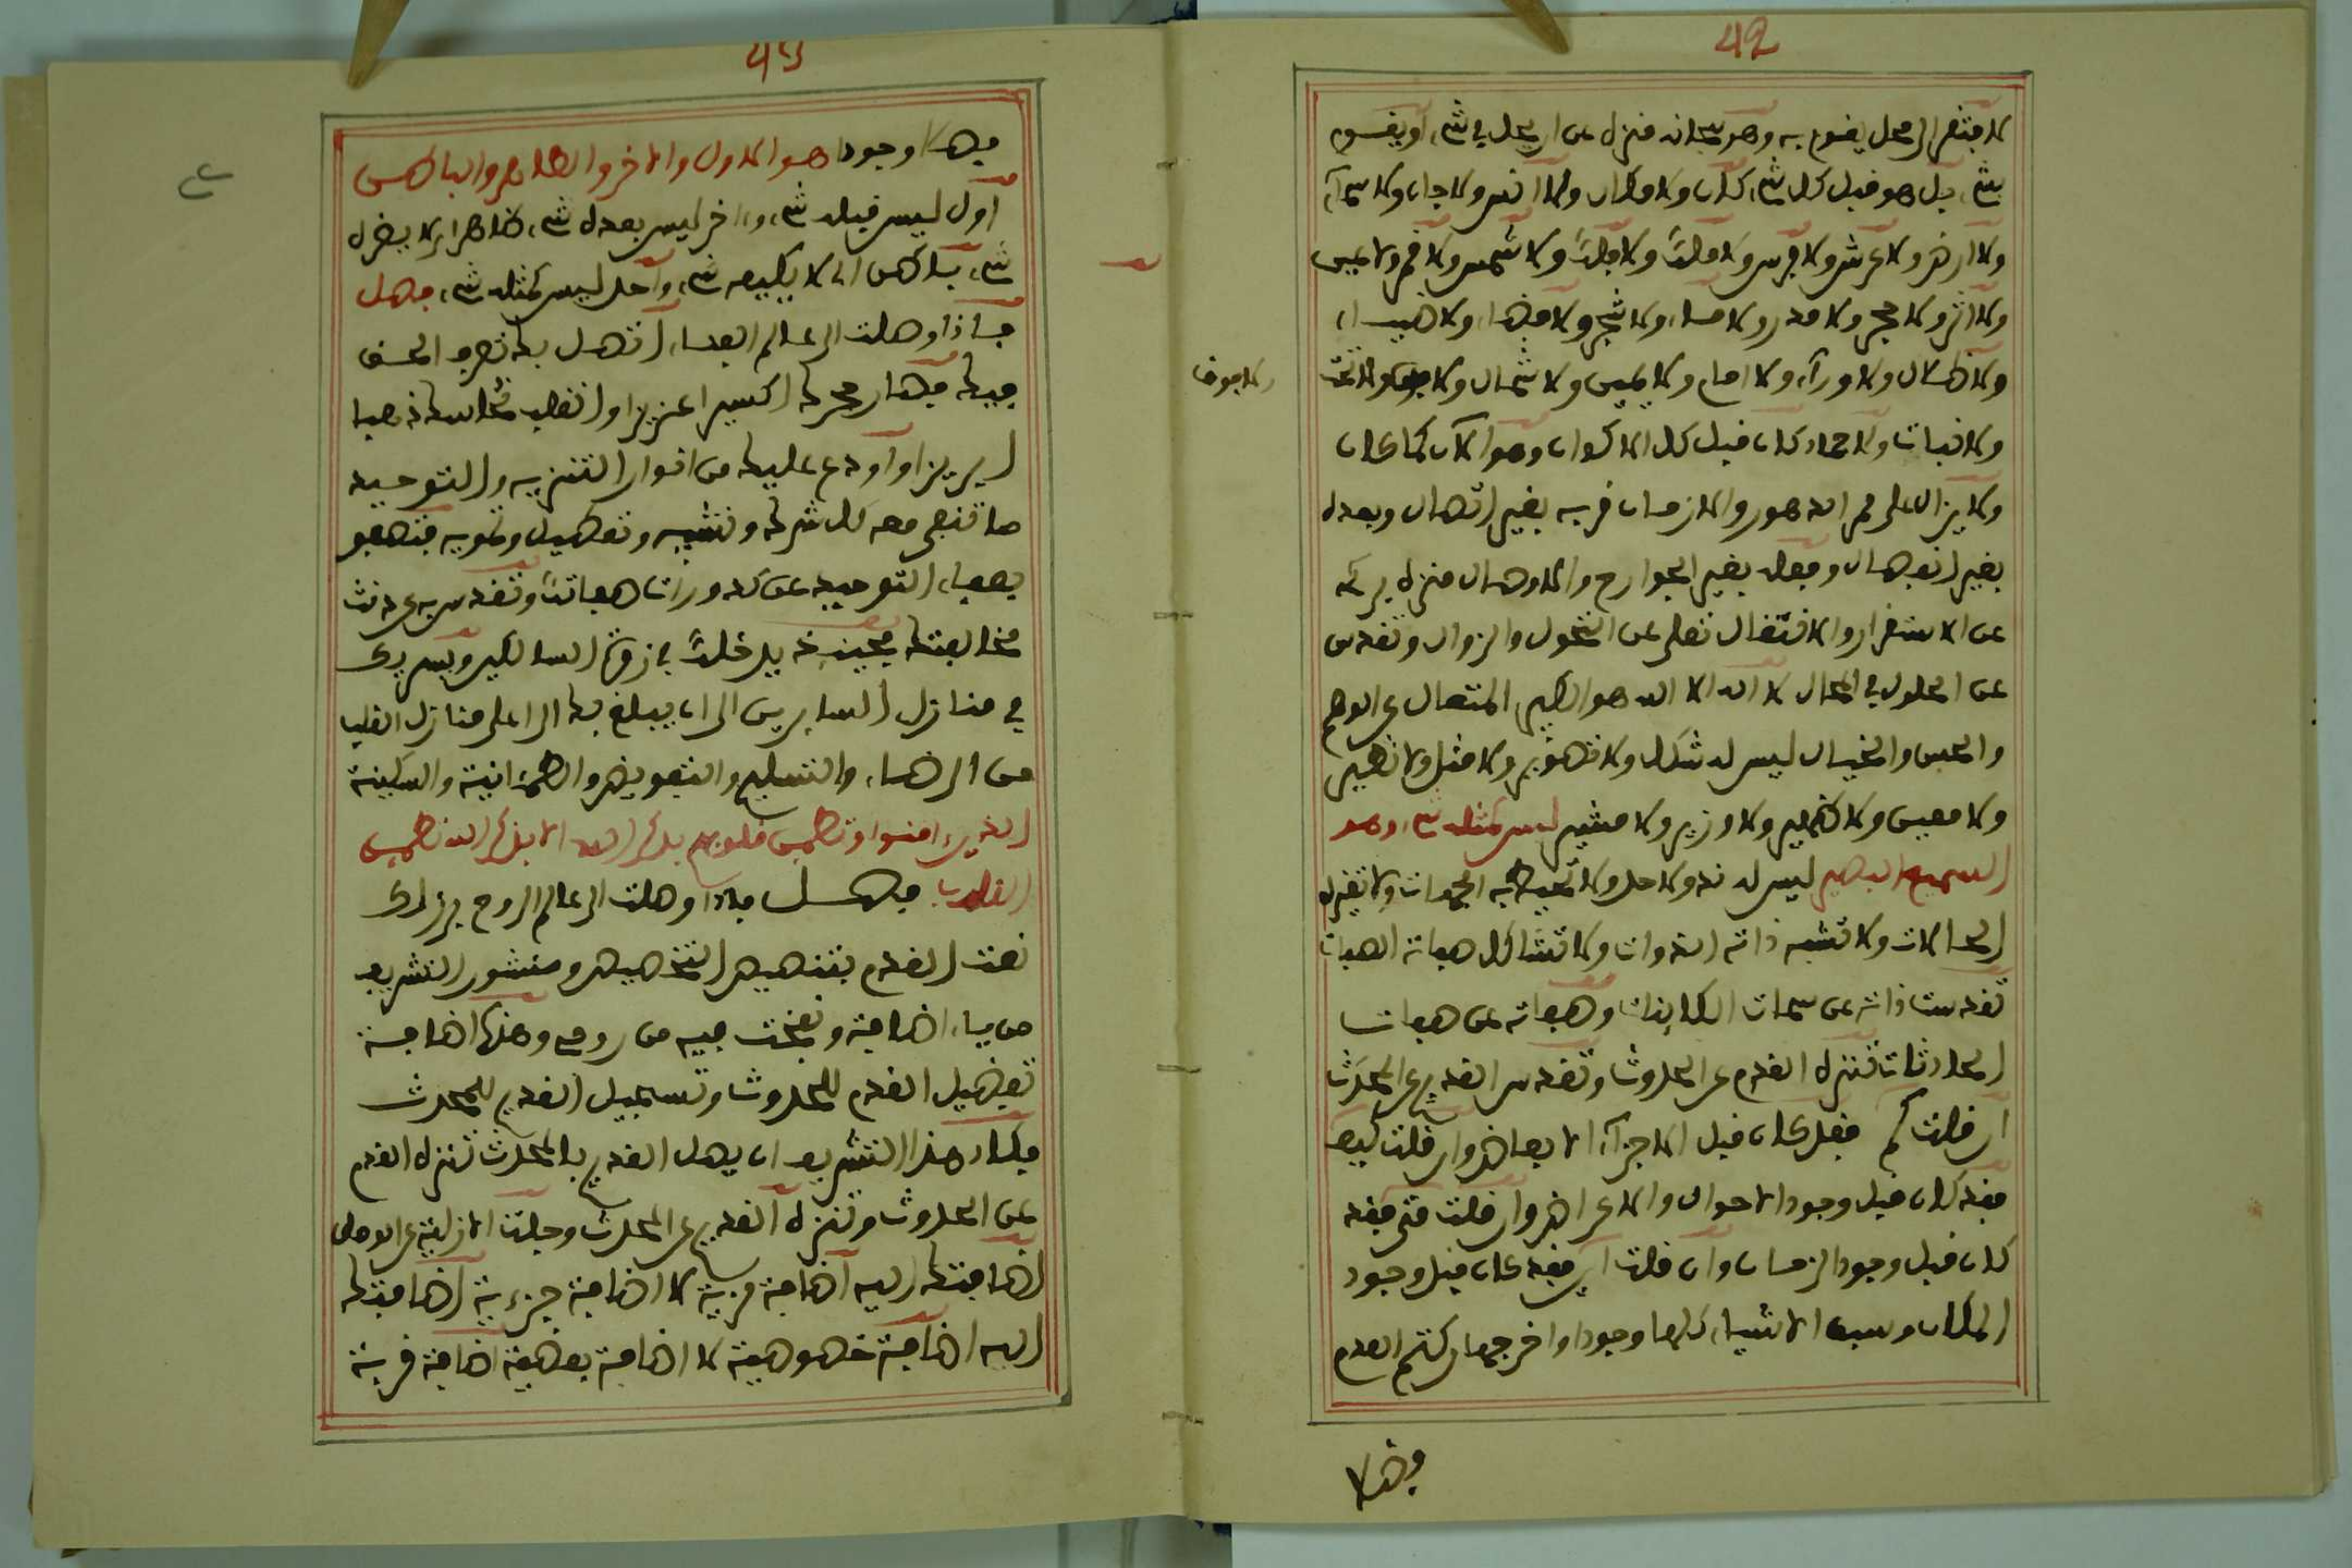 42
لافتقر الى محل يقوم به وهو سبحانه منزه عن ان يحل في شيء أو يقوم
بشيء بل هو قبل كل شيء كان ولا مكان ولا انس ولا جان ولا سماء
ولا ارض ولا عرش ولا فرش ولا ملك ولا فلك ولا شمس ولا قمر ولا عين
ولا اثر ولا حجر ولا مدر ولا ماء ولا شجر ولا فضاء ولا ضياء
ولا ظلال ولا وراء ولا امام ولا يمين ولا شمال ولا فوق ولا تحت
ولا فوق
ولا نبات ولا جماد كان قبل كل الاكوان وهو الآن كما كان
ولا يزال على ممر الدهور والازمان قربه بغير اتصال وبعده
بغير انفصال وفعله بغير الجوارح والاوصال منزه
عن الاستقرار والانتقال تعلى عن التحول والزوال وتقدس
عن الحلول في المحال لا اله الا الله هو الكبير المتعال عن الوهم
والحس والخيال ليس له شكل ولا تصوير ولا مثل ولا نظير
ولا معين ولا ظهير ولا وزير ولا مشير ليس كمثله شيء وهو
السميع البصير ليس له ند ولا حد ولا تحيط به الجهات ولا تغيره
الحالات ولا تشبه ذاته الذوات ولا تشاكل صفاته الصفات
تقدست ذاته عن سمات الكاينات وصفاته عن صفات
الحادثات تنزه القدم عن الحدوث وتقدس القديم عن المحدث
ان قلت كم فقد كان قبل الاجزاء الابعاض وان قلت كيف
فقد كان قبل وجود الاحوال والاعراض وان قلت متى فقد
كان قبل وجود الزمان وان قلت اين فقد كان قبل وجود
المكان وسبق الاشياء كلها وجودا واخرجها من كتم العدم
وفضلا
43
فضلا وجودا هو الاول والآخر والظاهر والباطن
اول ليس قبله شيء واخر ليس بعده شيء ظاهر
شيء باطن لا يكيفه شيء واحد ليس كمثله شيء فصل
فاذا وصلت الى عالم الصفاء اتصل بك تصرف الحق
فيك فصار حجرك اكسيرا عزيزا وانقلب نحاسك ذهبا
ابريزا وأودع عليك من انوار التنزيه والتوحيد
ما تنفي معه كل شرك وتشبيه وتعطيل وتمويه فتصفو
بصفاء التوحيد عن كدورات صفاتك وتقدس به عن دنث
مخالفتك فحينئذ يدخلك في زوايا السالكين ويسير بك
في منازل السايرين الى ان يبلغ بك الى اعلى منازل القلب
من الرضاء والتسليم والتفويض والطمانينة والسكينة
الذين امنوا وتطمين قلوبهم بذكر الله الا بذكر الله تطمين
القلوب فصل فاذا وصلت الى عالم الروح
نعت القدم بتنصيص التخصيص ومنشور التشريف
من ياء اضافة ونفخت فيه من روحي وهذه اضافة
تفضيل القدم للحدوث وتسجيل القديم للمحدث
فكاد هذا التشريف ان يصل القديم بالمحدث تنزه القدم
عن الحدوث وتنزه القديم عن المحدث وجلت الازلية عن
اضافتك اليه اضافة قربية لا اضافة جزءية اضافتك
اليه اضافة خصوصية لا اضافة بعضية اضافة قربة